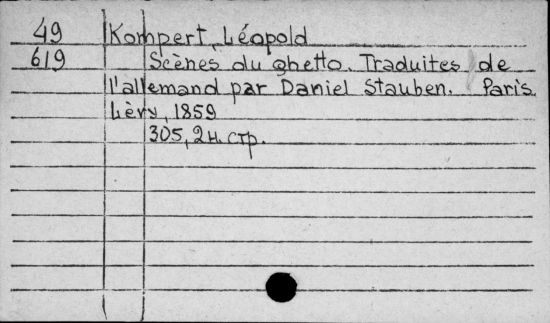 49 Kompert, Léopold
619 Scènes du ghetto. Traduites de
l'allemand par Daniel Stauben. Paris.
Lèvy, 1859
305, 2 н. стр.